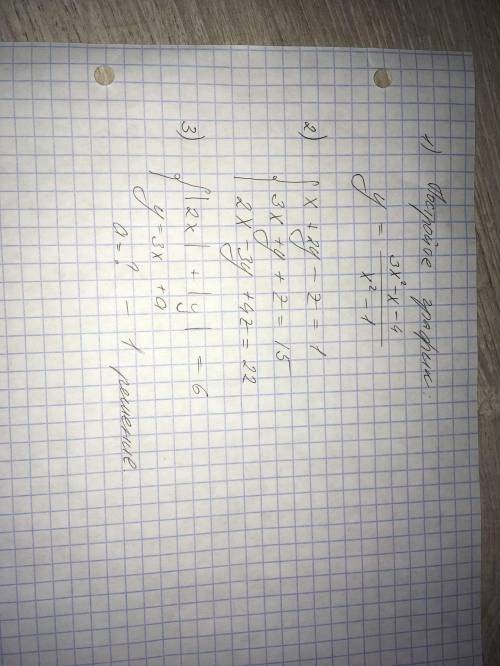 1) Постройте график:
y = (3x² - x - 4) / (x² - 1)
2) { x + 2y - z = 1
3x + y + z = 15
2x - 3y + 4z = 22
3) { |2x| + |y| = 6
y = 3x + a
a = ? - 1 решение